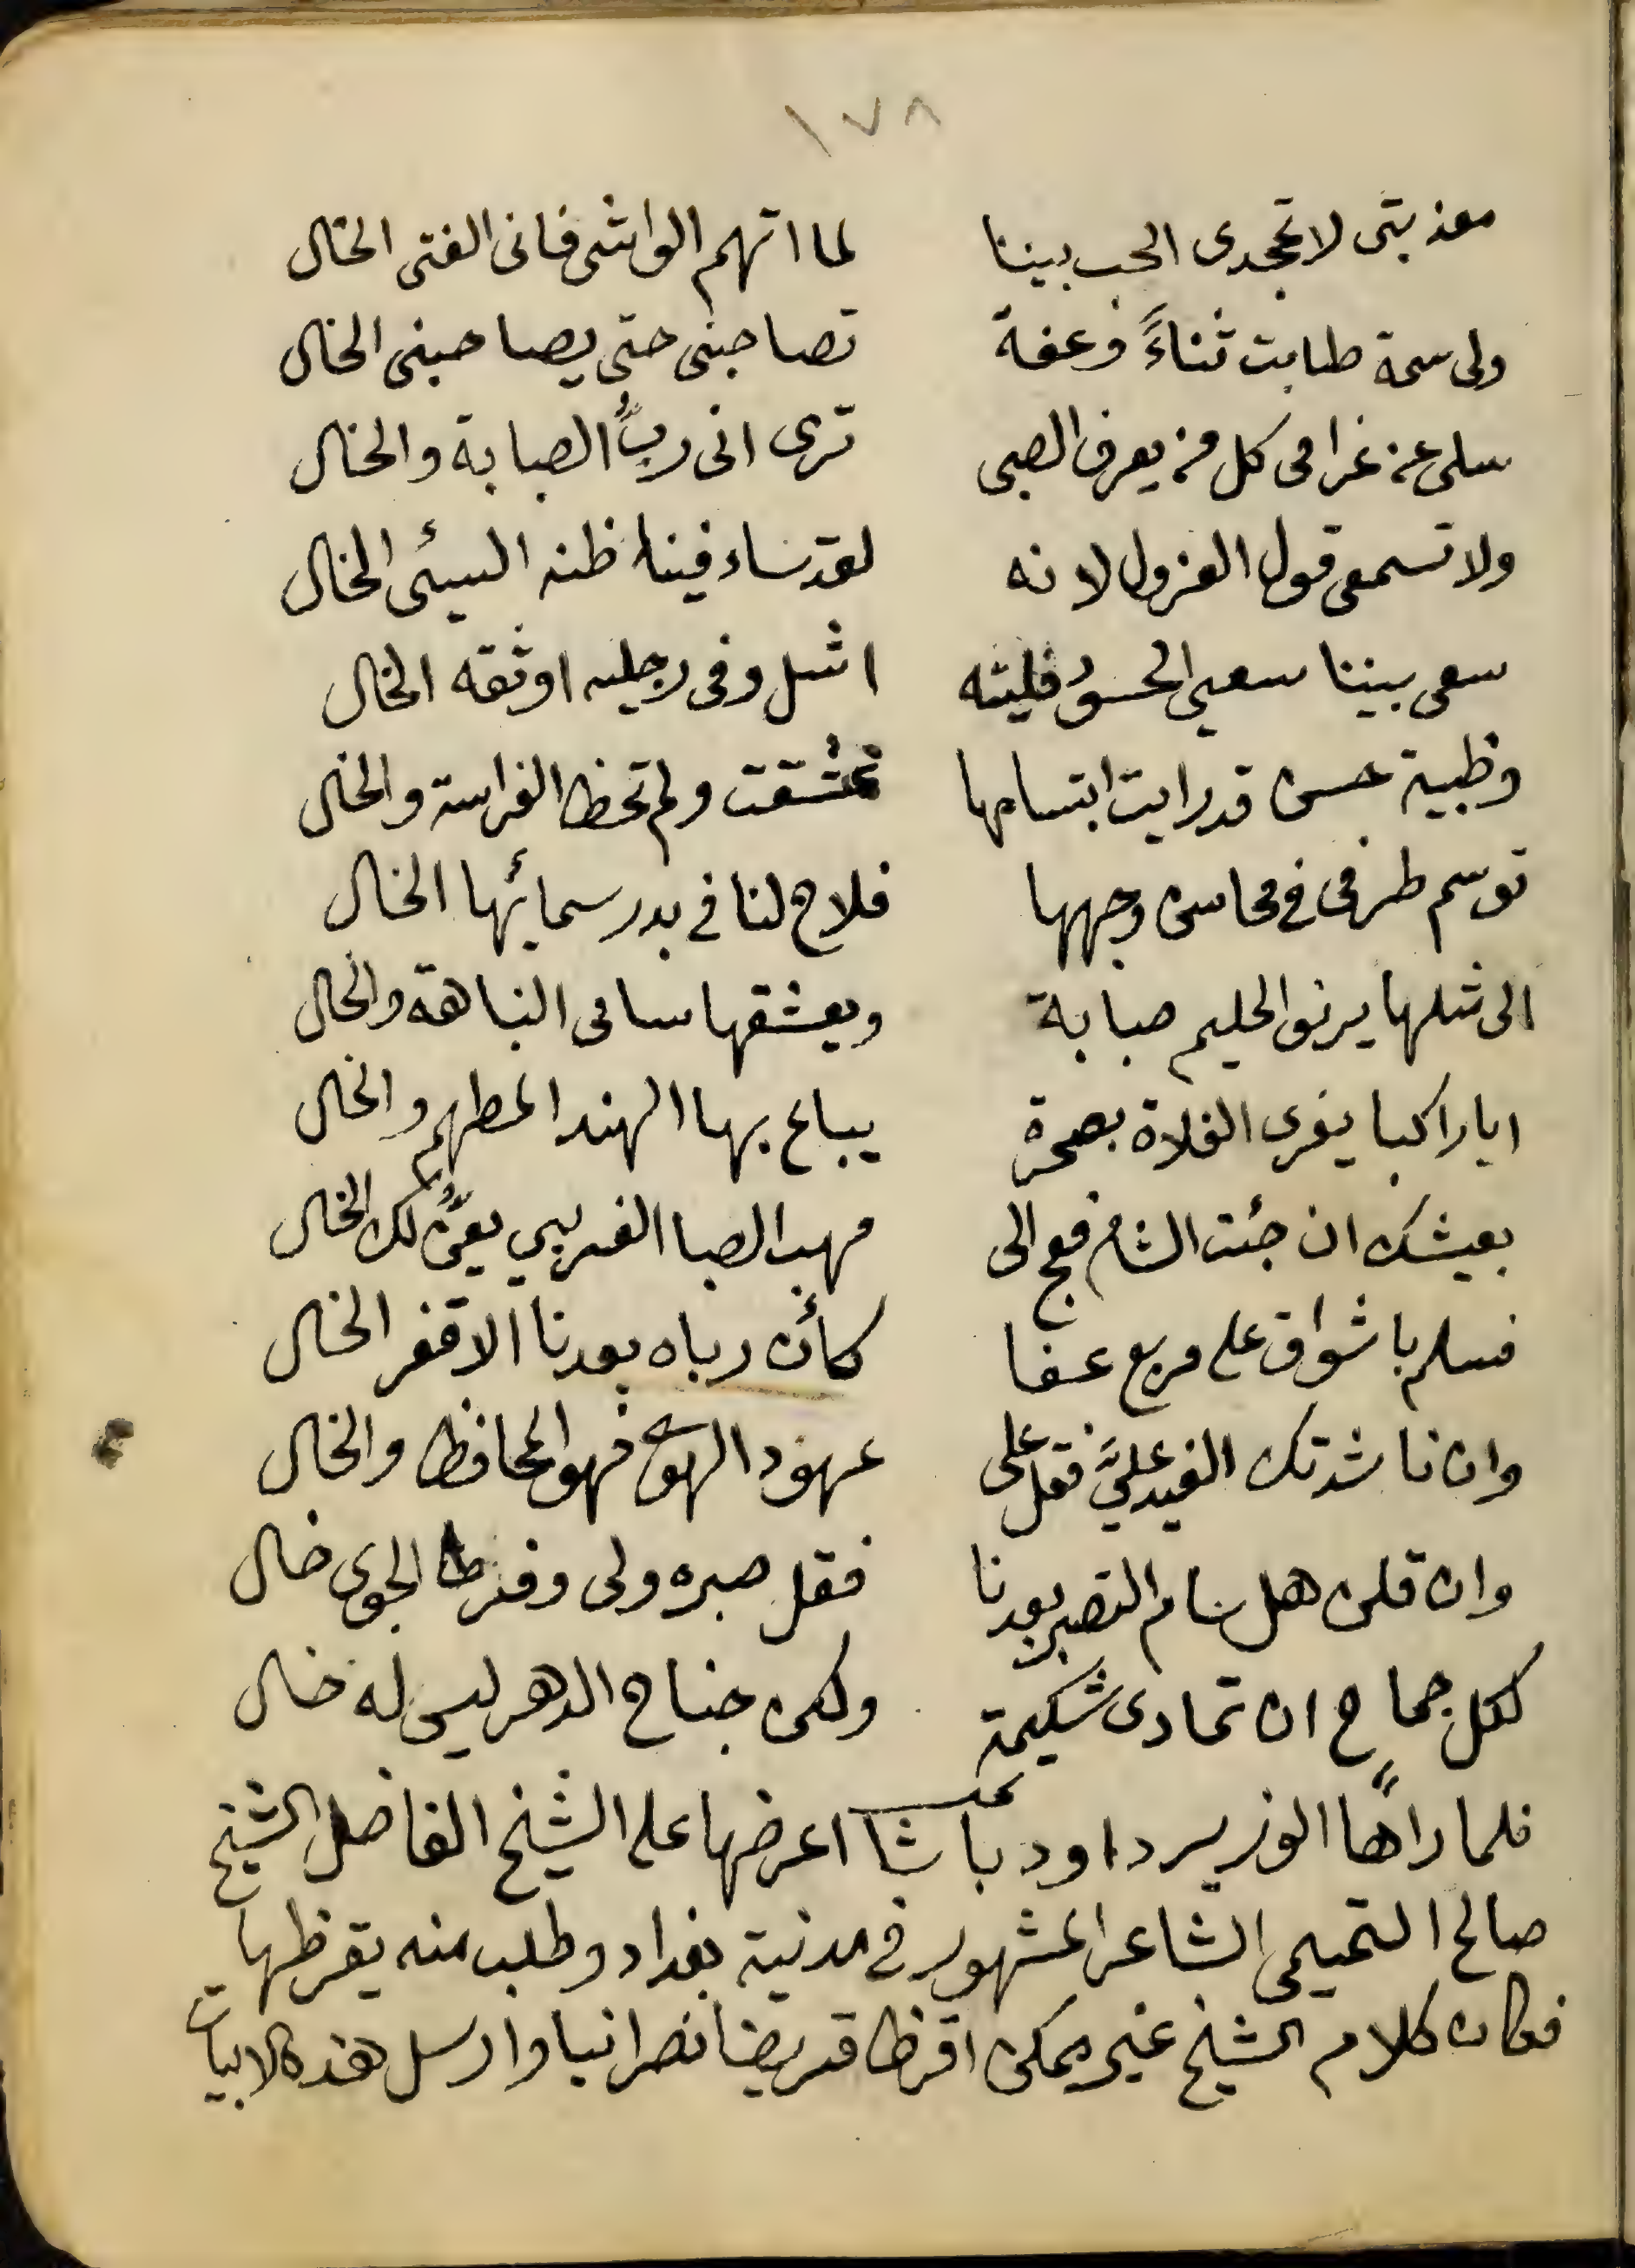 ١٧٨
معذبتى لا تجحدى الحب بيننا لما اتهم الواشى فانى الفتى الخال
ولى سمة طابت ثناءً وعفة تصاحبنى حتى يصاحبنى الخال
سلى عن غرامى كل من يعرف الصبى ترى انى ربُّ الصبابة والخال
ولا تسمعى قول العزول لانه لقد ساء فينا ظنه السيئ الخال
سعى بيننا سعي الحسود فليته اشل وفى رجليه اوثقه الخال
وظبية حسن قد رايت ابتسامها عشقت ولم تخط الفراسة والخال
توسم طرفى فى محاسن وجهها فلاح لنا فى بدر سمائها الخال
الى مثلها يرنو الحليم صبابة ويعشقها سامى النباهة والخال
ايا راكبا يفرى الفلاة بصحرة يباع بها الهند المطهم والخال
بعيشك ان جئت الشام فعج الى مهب الصبا الغربي يعنُّ لك الخال
فسلم باشواق على مربع عفا كأن رباه بعدنا الاقفر الخال
وان ناشدتك الغيد عليَّ فقل على عهود الهوى فهو المحافظ والخال
وان قلن هل سام التصبر بعدنا فقل صبره ولى وفرط الجوى خال
لكل جماح ان تمادى شكيمة ولكن جناح الدهر ليس له خال
فلما رأها الوزير داود باشا اعرضها على الشيخ الفاضل الشيخ
صالح التميمى الشاعر المشهور فى مدنية بغداد وطلب منه يقرظها
فكان كلام الشيخ غير يمكن اقرظ قريضا نصرانيا وارسل هذه الابيات